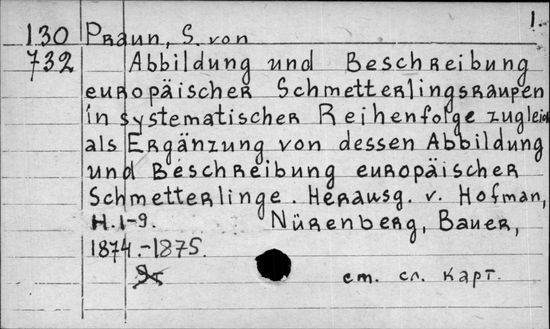 1.
130 Praun, S. von
732 Abbildung und Beschreibung
europäischer Schmetterlingsraupen
in systematischer Reihenfolge zugleich
als Ergänzung von dessen Abbildung
und Beschreibung europäischer
Schmetterlinge. Herausg. v. Hofman,
H. 1-9. Nürenberg, Bauer,
1874.-1875.
см. сл. карт.